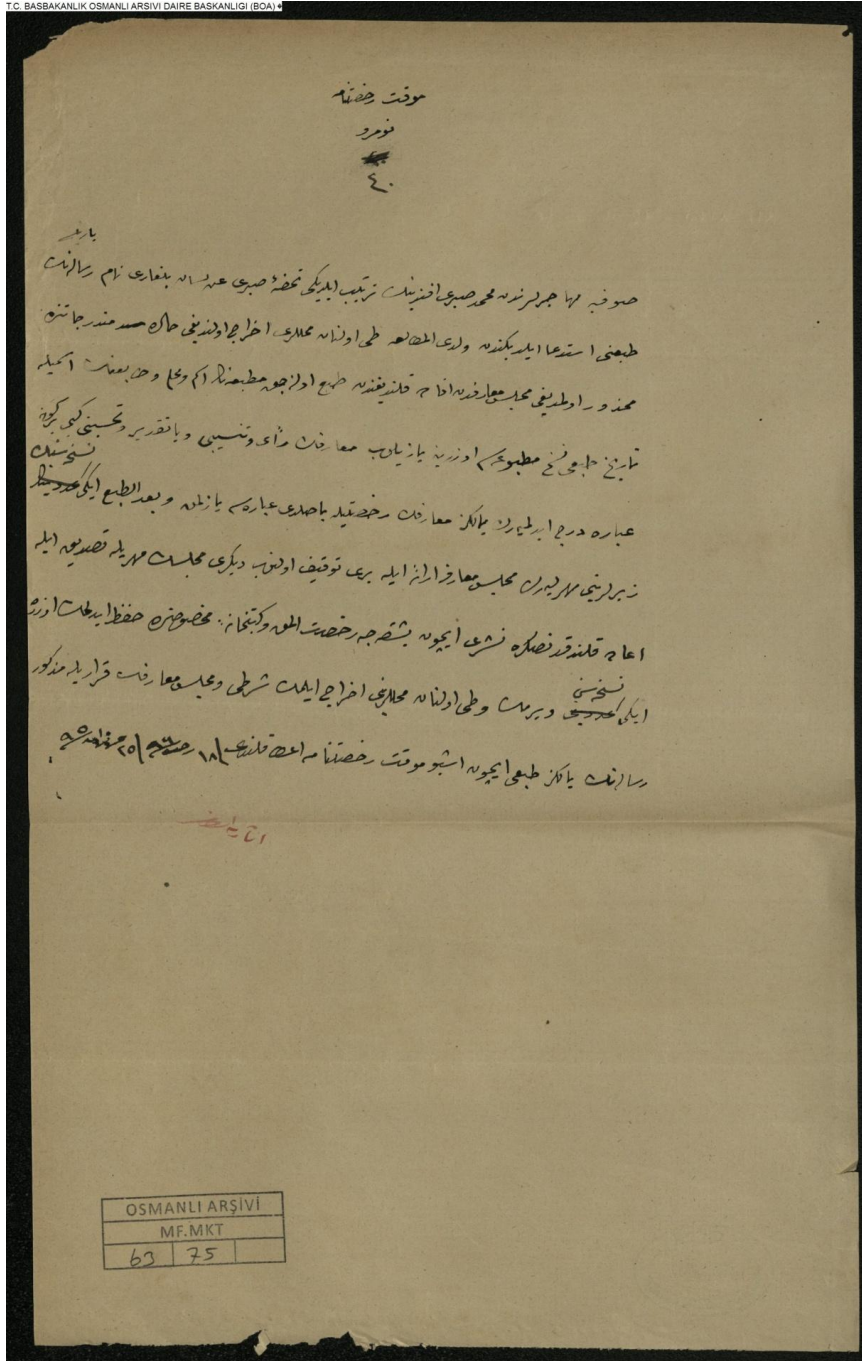 T.C. BASBAKANLIK OSMANLI ARSIVI DAIRE BASKANLIGI (BOA)
موقت رخصتنامه
نومرو
٤٠
صوفيه مهاجرلرندن محمد صبری افندينك ترتيب ايلديكی تحفهٔ صبری عن لسان بلغاری نام رساله‌نك
طبعنی استدعا ايلديكندن ولدی المطالعه طی اولنان محللری اخراج اولنديغی حالده مندرجاتنده
محذور اولمديغی مجلس معارفدن افاده قلنديغندن طبع اولنه‌جق مطبعه‌نك اسم و محلی وطابعنك اسميله
تاريخ طبعی نسخ مطبوعه‌سی اوزرينه يازيلوب معارفك رأی وتنسيبی ويا تقدير وتحسينی كبی بركونه
عباره درج ايدلميه‌رك يالكز معارفك رخصتيله باصلدی عباره‌سی يازلمق وبعد الطبع ايكی نسخه‌سنك
زيرلرينی مهرليه‌رك مجلس معارفه ارائه ايله بری توقيف اولنوب ديكری مجلسك مهريله تصديق ايله
اعاده قلندقدنصكره نشری ايچون بشقه‌جه رخصت المق وكتبخانه‌ مخصوصنده حفظ ايدلمك اوزره
ايكی نسخه‌سنی ويرمك وطی اولنان محللرينی اخراج ايلمك شرطی ومجلس معارفك قراريله مذكور
رساله‌نك يالكز طبعی ايچون اشبو موقت رخصتنامه اعطا قلندی ١٨
OSMANLI ARŞİVİ
MF.MKT
63 75